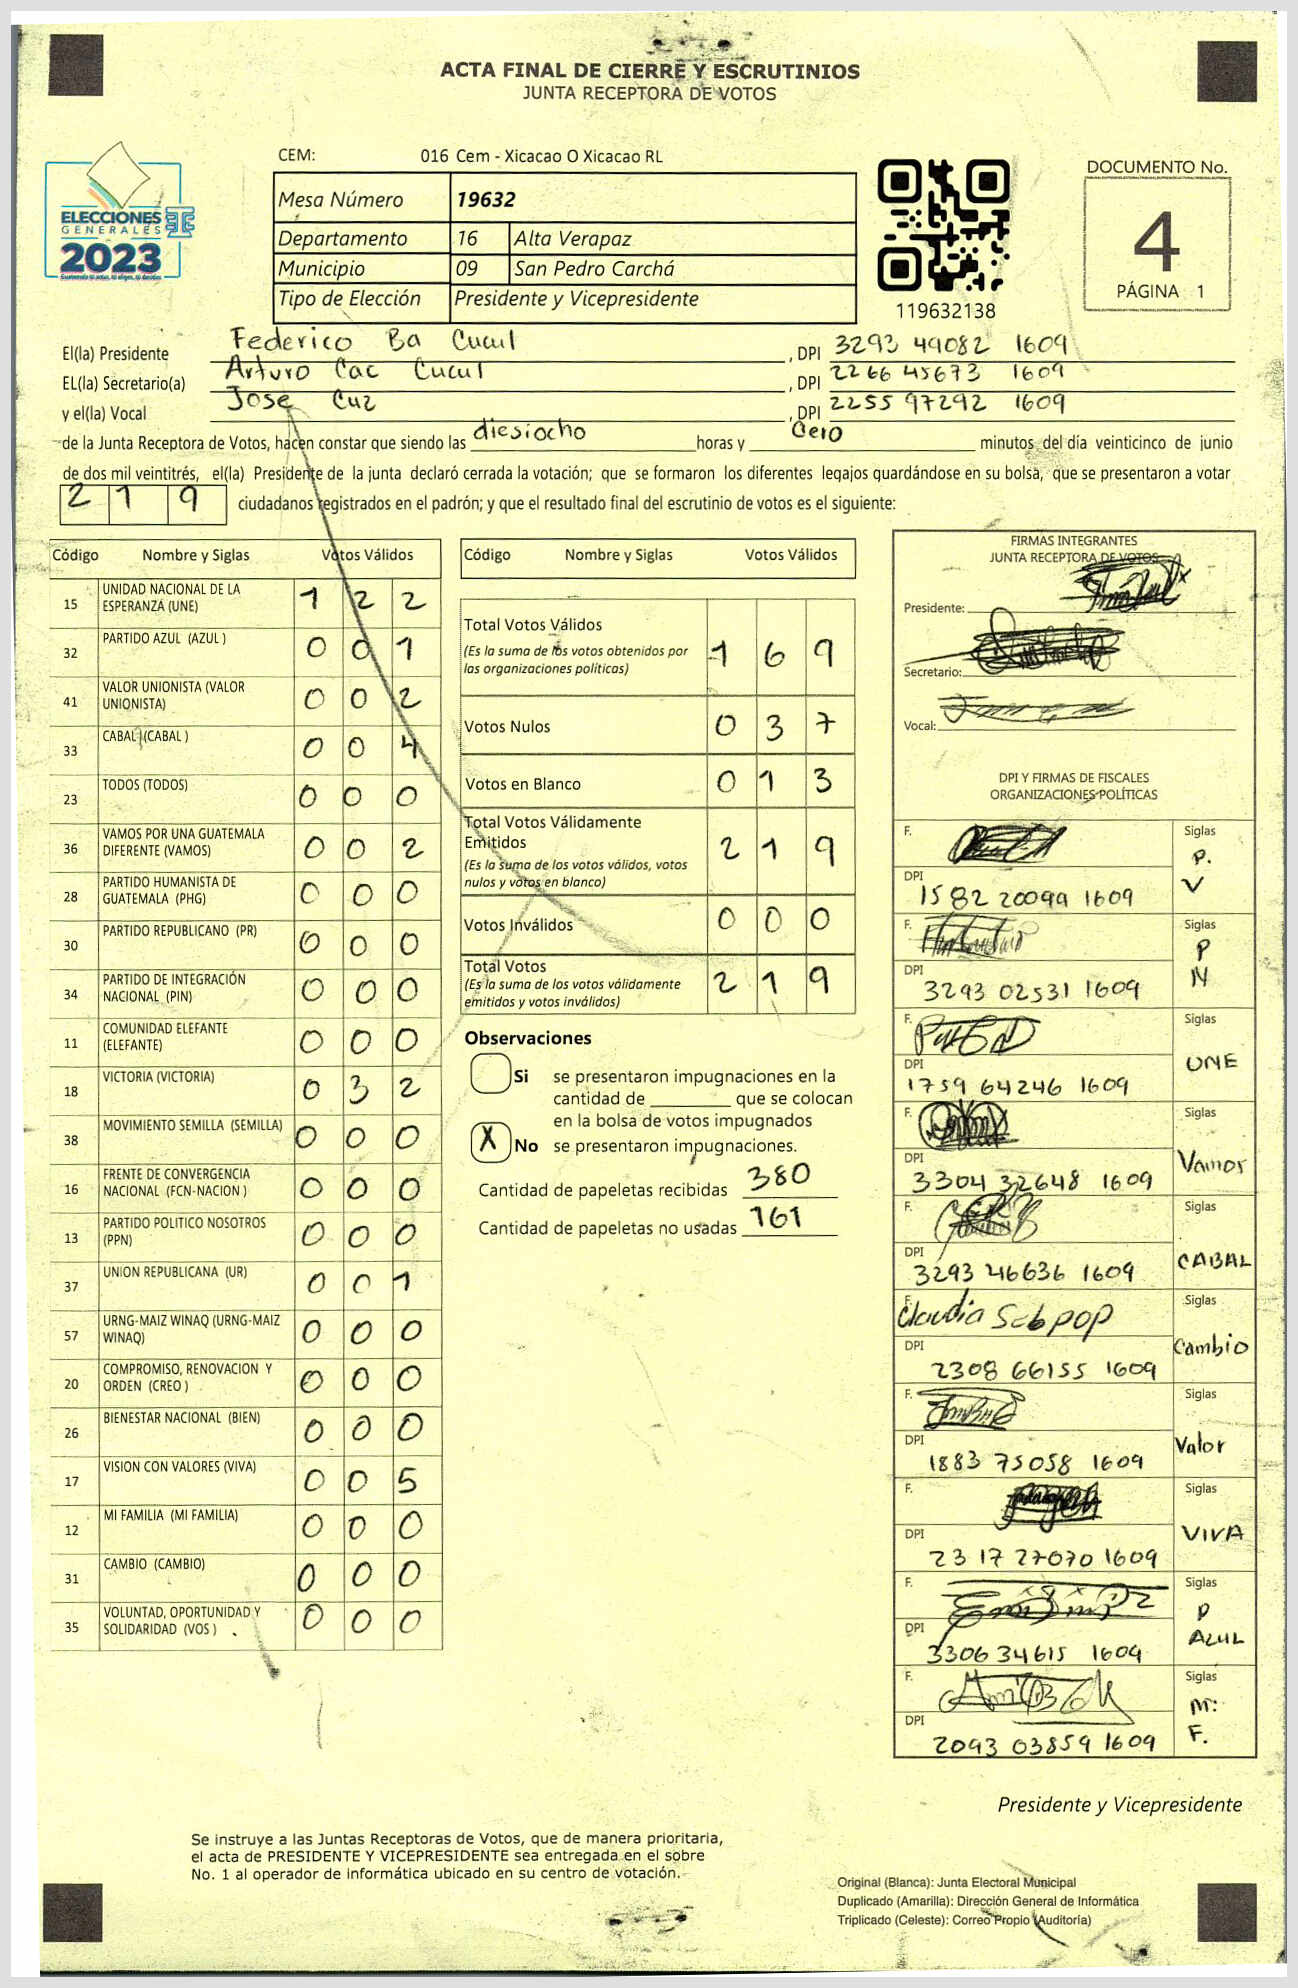 ACTA FINAL DE CIERRE Y ESCRUTINIOS
JUNTA RECEPTORA DE VOTOS
ELECCIONES
GENERALES
2023
CEM: 016 Cem - Xicacao O Xicacao RL
Mesa Número 19632
Departamento 16 Alta Verapaz
Municipio 09 San Pedro Carchá
Tipo de Elección Presidente y Vicepresidente
119632138
DOCUMENTO No.
4
PÁGINA 1
El(la) Presidente Federico Ba Cucul , DPI 3293 49082 1609
EL(la) Secretario(a) Arturo Cac Cucul , DPI 2266 45673 1609
y el(la) Vocal Jose Cuz , DPI 2255 97292 1609
de la Junta Receptora de Votos, hacen constar que siendo las diesiocho horas y Cero minutos del día veinticinco de junio
de dos mil veintitrés, el(la) Presidente de la junta declaró cerrada la votación; que se formaron los diferentes legajos guardándose en su bolsa, que se presentaron a votar
2 1 9 ciudadanos registrados en el padrón; y que el resultado final del escrutinio de votos es el siguiente:
Código Nombre y Siglas Votos Válidos
15 UNIDAD NACIONAL DE LA ESPERANZA (UNE) 1 2 2
32 PARTIDO AZUL (AZUL ) 0 0 1
41 VALOR UNIONISTA (VALOR UNIONISTA) 0 0 2
33 CABAL (CABAL ) 0 0 4
23 TODOS (TODOS) 0 0 0
36 VAMOS POR UNA GUATEMALA DIFERENTE (VAMOS) 0 0 2
28 PARTIDO HUMANISTA DE GUATEMALA (PHG) 0 0 0
30 PARTIDO REPUBLICANO (PR) 0 0 0
34 PARTIDO DE INTEGRACIÓN NACIONAL (PIN) 0 0 0
11 COMUNIDAD ELEFANTE (ELEFANTE) 0 0 0
18 VICTORIA (VICTORIA) 0 3 2
38 MOVIMIENTO SEMILLA (SEMILLA) 0 0 0
16 FRENTE DE CONVERGENCIA NACIONAL (FCN-NACION ) 0 0 0
13 PARTIDO POLITICO NOSOTROS (PPN) 0 0 0
37 UNION REPUBLICANA (UR) 0 0 1
57 URNG-MAIZ WINAQ (URNG-MAIZ WINAQ) 0 0 0
20 COMPROMISO, RENOVACION Y ORDEN (CREO ) 0 0 0
26 BIENESTAR NACIONAL (BIEN) 0 0 0
17 VISION CON VALORES (VIVA) 0 0 5
12 MI FAMILIA (MI FAMILIA) 0 0 0
31 CAMBIO (CAMBIO) 0 0 0
35 VOLUNTAD, OPORTUNIDAD Y SOLIDARIDAD (VOS ) 0 0 0
Código Nombre y Siglas Votos Válidos
Total Votos Válidos 1 6 9
(Es la suma de los votos obtenidos por
las organizaciones políticas)
Votos Nulos 0 3 7
Votos en Blanco 0 1 3
Total Votos Válidamente
Emitidos 2 1 9
(Es la suma de los votos válidos, votos
nulos y votos en blanco)
Votos Inválidos 0 0 0
Total Votos 2 1 9
(Es la suma de los votos válidamente
emitidos y votos inválidos)
Observaciones
Si se presentaron impugnaciones en la
cantidad de ________ que se colocan
en la bolsa de votos impugnados
X No se presentaron impugnaciones.
Cantidad de papeletas recibidas 380
Cantidad de papeletas no usadas 161
FIRMAS INTEGRANTES
JUNTA RECEPTORA DE VOTOS
Presidente:
Secretario:
Vocal:
DPI Y FIRMAS DE FISCALES
ORGANIZACIONES POLÍTICAS
F. Siglas P. V
DPI 1582 20099 1609
F. Siglas P N
DPI 3293 02531 1609
F. Siglas UNE
DPI 1759 64246 1609
F. Siglas Vamos
DPI 3304 32648 1609
F. Siglas CABAL
DPI 3293 46636 1609
F. Claudia Seb pop Siglas Cambio
DPI 2308 66155 1609
F. Siglas Valor
DPI 1883 75058 1609
F. Siglas VIVA
DPI 2317 27070 1609
F. Siglas P AZUL
DPI 3306 34615 1609
F. Siglas M: F.
DPI 2093 03859 1609
Presidente y Vicepresidente
Se instruye a las Juntas Receptoras de Votos, que de manera prioritaria,
el acta de PRESIDENTE Y VICEPRESIDENTE sea entregada en el sobre
No. 1 al operador de informática ubicado en su centro de votación.
Original (Blanca): Junta Electoral Municipal
Duplicado (Amarilla): Dirección General de Informática
Triplicado (Celeste): Correo Propio (Auditoría)